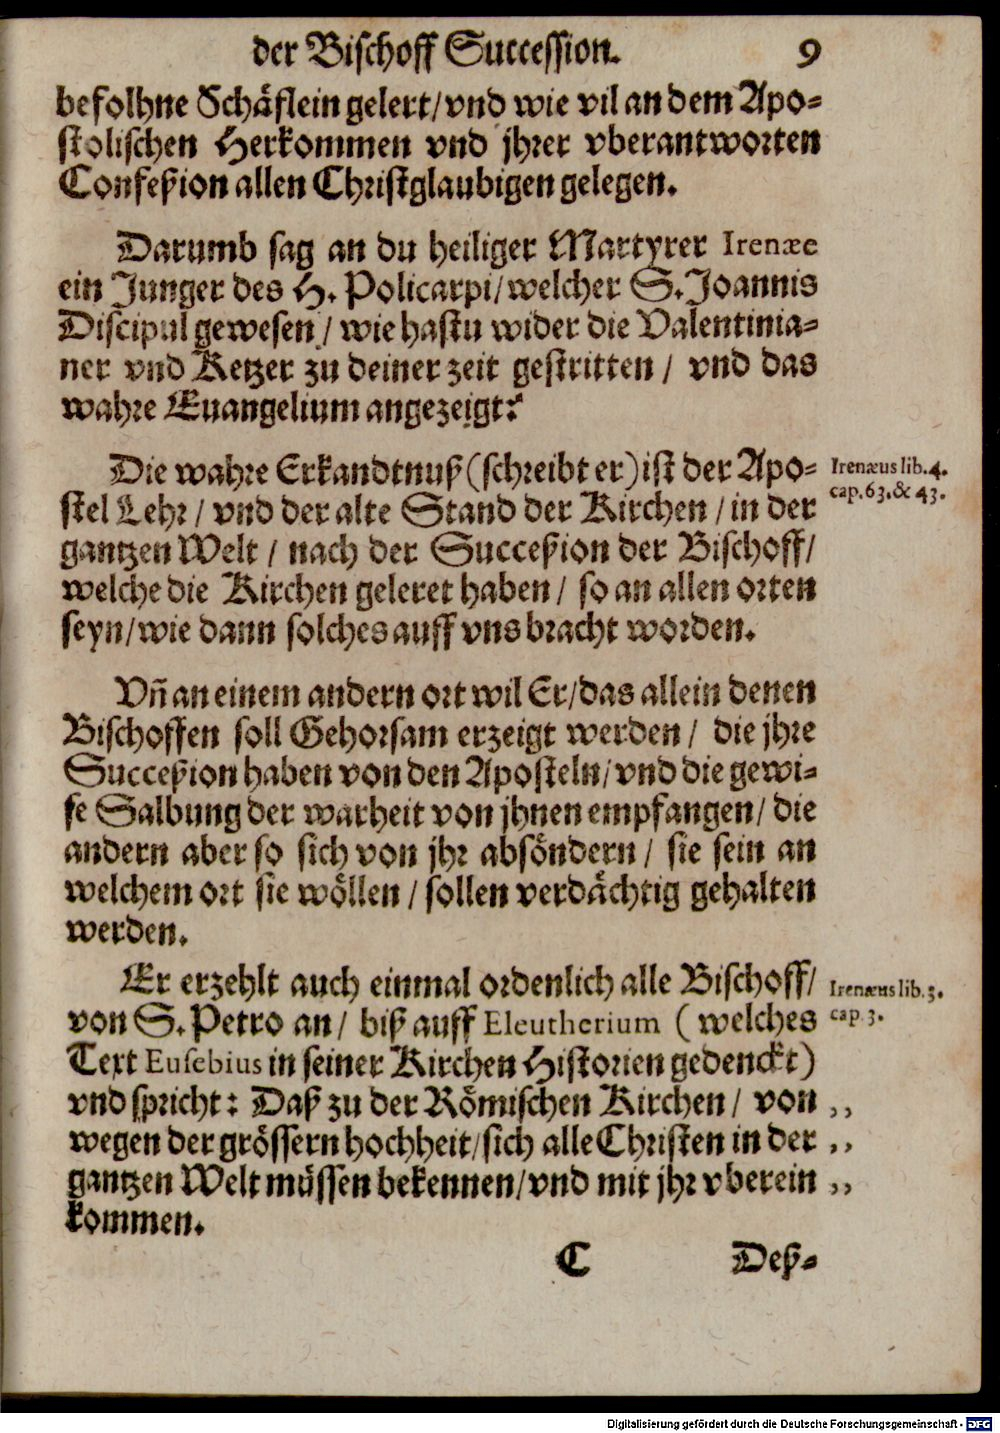 der Bischoff Succession. 9
befolhne Schäflein gelert/ vnd wie vil an dem Apo-
stolischen Herkommen vnd jhrer vberantworten
Confeßion allen Christglaubigen gelegen.
Darumb sag an du heiliger Martyrer Irenæe
ein Junger des H. Policarpi/ welcher S. Joannis
Discipul gewesen / wie hastu wider die Valentinia-
ner vnd Ketzer zu deiner zeit gestritten / vnd das
wahre Euangelium angezeigt?
Die wahre Erkandtnuß (schreibt er) ist der Apo-
stel Lehr / vnd der alte Stand der Kirchen / in der
gantzen Welt / nach der Succeßion der Bischoff/
welche die Kirchen geleret haben / so an allen orten
seyn/ wie dann solches auff vns bracht worden.
Irenæus lib. 4.
cap. 63. & 43.
Vñ an einem andern ort wil Er/ das allein denen
Bischoffen soll Gehorsam erzeigt werden / die jhre
Succeßion haben von den Aposteln/ vnd die gewi-
se Salbung der warheit von jhnen empfangen/ die
andern aber so sich von jhr absöndern / sie sein an
welchem ort sie wöllen / sollen verdächtig gehalten
werden.
Er erzehlt auch einmal ordenlich alle Bischoff/
von S. Petro an/ biß auff Eleutherium ( welches
Text Eusebius in seiner Kirchen Historien gedenckt)
vnd spricht: Daß zu der Römischen Kirchen / von ,,
wegen der grössern hochheit/ sich alle Christen in der ,,
gantzen Welt müssen bekennen/ vnd mit jhr vberein ,,
kommen.
Irenæus lib. 3.
cap 3.
C Deß-
Digitalisierung gefördert durch die Deutsche Forschungsgemeinschaft - DFG